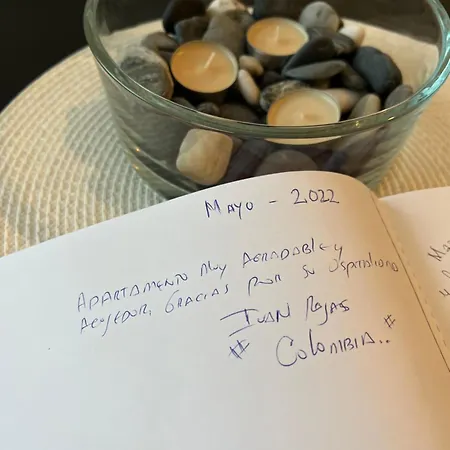 Mayo - 2022
Apartamento muy agradable y
acojedor, Gracias por su ospitalidad
Juan Rojas
# Colombia.. #